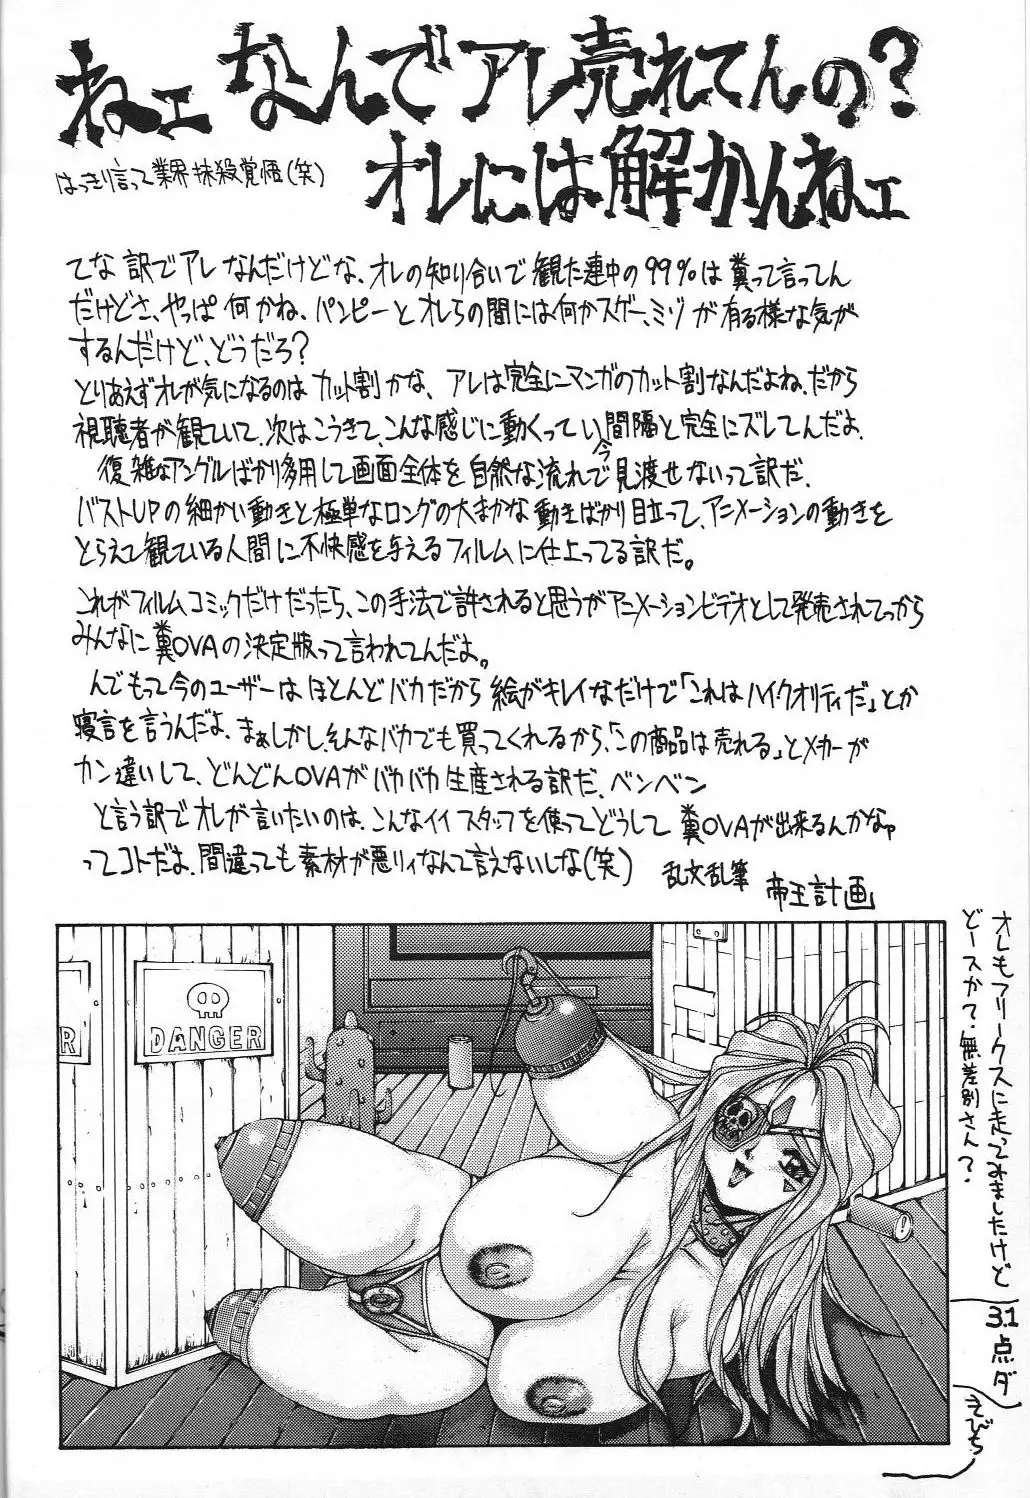 ねェ なんでアレ売れてんの?
オレには解かんねェ
はっきり言って業界抹殺覚悟(笑)
てな訳でアレなんだけどな、オレの知り合いで観た連中の99%は糞って言ってん
だけどさ、やっぱ何かね、パンピーとオレらの間には何かスゲー、ミゾが有る様な気が
するんだけど、どうだろ?
とりあえずオレが気になるのはカット割かな、アレは完全にマンガのカット割なんだよね、だから
視聴者が観ていて、次はこうきて、こんな感じに動くってい今間隔と完全にズレてんだよ、
復雑なアングルばかり多用して画面全体を自然な流れで見渡せないって訳だ、
バストUPの細かい動きと極単なロングの大まかな動きばかり目立って、アニメーションの動きを
とらえて観ている人間に不快感を与えるフィルムに仕上ってる訳だ。
これがフィルムコミックだけだったら、この手法で許されると思うがアニメーションビデオとして発売されてっから
みんなに糞OVAの決定版って言われてんだよ。
んでもって今のユーザーはほとんどバカだから絵がキレイなだけで「これはハイクオリティだ」とか
寝言を言うんだよ、まぁしかし、そんなバカでも買ってくれるから、「この商品は売れる」とメーカーが
カン違いして、どんどんOVAがバカバカ生産される訳だ、ベンベン
と言う訳でオレが言いたいのは、こんなイイスタッフを使ってどうして糞OVAが出来るんかなァ
ってコトだよ、間違っても素材が悪リィなんて言えないしな(笑)
乱文乱筆
帝王計画
オレもフリークスに走ってみましたけど
どースかて、無差別さん?
3.1点ダ
えびち
DANGER
R